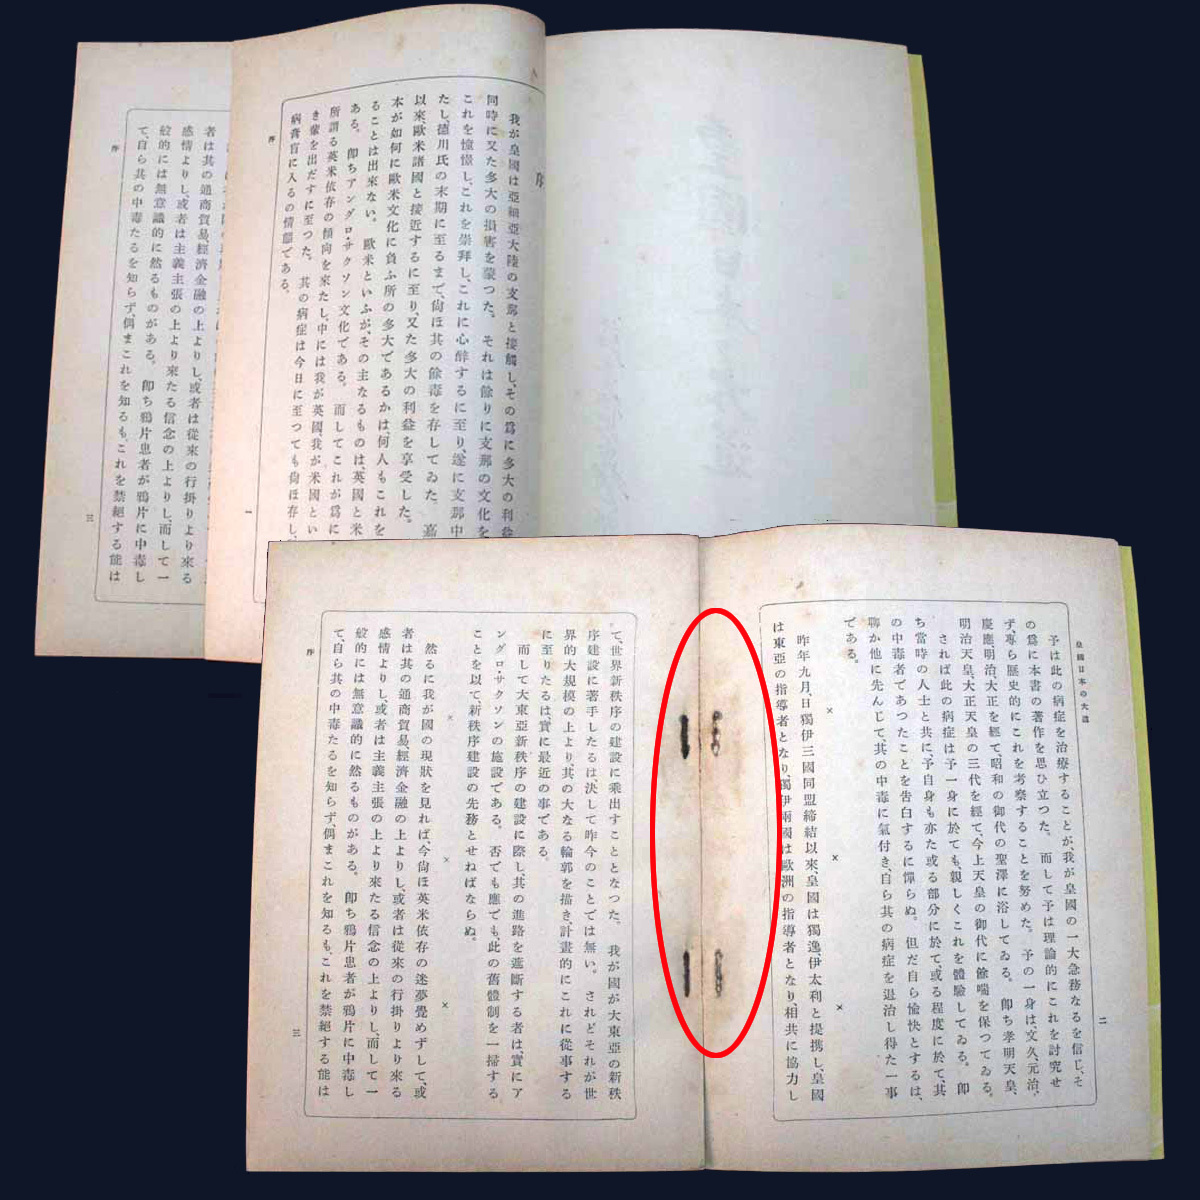 序
我が皇國は亞細亞大陸の支那と接觸し、その爲に多大の利益
同時に又た多大の損害を蒙つた。それは餘りに支那の文化を
これを憧憬し、これを崇拜し、これに心醉するに至り、遂に支那中
たし、德川氏の末期に至るまで、尙ほ其の餘毒を存してゐた。嘉
以來、歐米諸國と接近するに至り、又た多大の利益を享受した。
本が如何に歐米文化に負ふ所の多大であるかは、何人もこれを
ることは出來ない。歐米といふが、その主なるものは、英國と米
ある。卽ちアングロ・サクソン文化である。而してこれが爲に、
所謂る英米依存の傾向を來たし、中には我が英國、我が米國とい
き輩を出だすに至つた。其の病症は今日に至つても尙ほ存し、
病膏肓に入るの情態である。
序
一
者は其の通商貿易、經濟金融の
感情よりし、或者は從來の行掛りより來る
般的には無意識的に然るものがある。卽ち鴉片患者が鴉片に中毒し
て、自ら其の中毒たるを知らず、偶まこれを知るも、これを禁絕する能は
序
三
皇國日本の大道
予は此の病症を治療することが、我が皇國の一大急務なるを信じ、そ
の爲に本書の著作を思ひ立つた。而して予は理論的にこれを討究せ
ず、專ら歷史的にこれを考察することを努めた。予の一身は文久、元治、
慶應、明治、大正を經て、昭和の御代の聖澤に浴してゐる。卽ち孝明天皇、
明治天皇、大正天皇の三代を經て、今上天皇の御代に餘喘を保つてゐる。
されば此の病症は予一身に於ても、親しくこれを體驗してゐる。卽
ち當時の人士と共に、予自身も亦た或る部分に於て、或る程度に於て、其
の中毒者であつたことを告白するに憚らぬ。但だ自ら愉快とするは、
聊か他に先んじて、其の中毒に氣付き、自ら其の病症を退治し得た一事
である。
× × ×
昨年九月、日獨伊三國同盟締結以來、皇國は獨逸、伊太利と提携し、皇國
は東亞の指導者となり、獨伊兩國は歐洲の指導者となり、相共に協力し
二
て、世界新秩序の建設に乘出すこととなつた。我が國が大東亞の新秩
序建設に著手したるは、決して昨今のことでは無い。されどそれが世
界的大規模の上より、其の大なる輪郭を描き、計畫的にこれに從事する
に至りたるは、實に最近の事である。
而して大東亞新秩序の建設に際し、其の進路を遮斷する者は、實にア
ングロ・サクソンの施設である。否でも應でも此の舊體制を一掃する
ことを以て、新秩序建設の先務とせねばならぬ。
× × ×
然るに我が國の現狀を見れば、今尙ほ英米依存の迷夢覺めずして、或
者は其の通商貿易、經濟金融の上よりし、或者は從來の行掛りより來る
感情よりし、或者は主義主張の上より來たる信念の上よりし、而して一
般的には無意識的に然るものがある。卽ち鴉片患者が鴉片に中毒し
て、自ら其の中毒たるを知らず、偶まこれを知るも、これを禁絕する能は
序
三